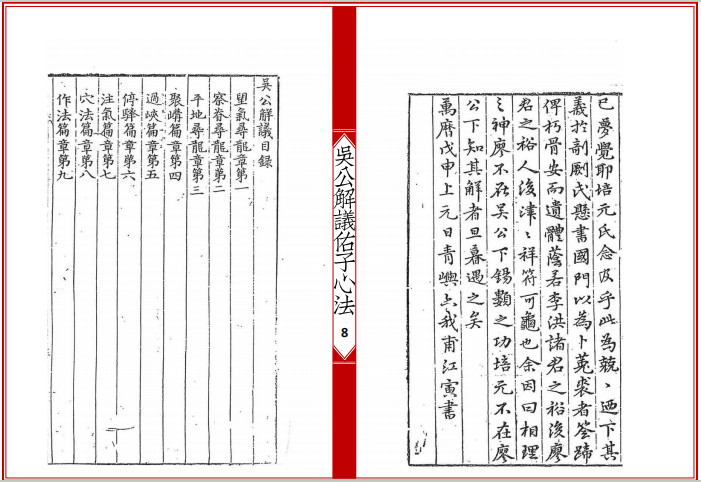 已夢覺耶培元氏念及乎此為兢〻迺下其
義於剞劂氏懸書國門以為卜菟裘者筌蹄
俾朽骨安而遺體蔭若李洪諸君之裕後廖
君之裕人後津〻祥符可龜也余因曰相理
〻神廖不在吳公下錫類之功培元不在廖
公下知其解者旦暮遇之矣
萬曆戊申上元日青嶼 我甫江寅書
吳公解議佑子心法
8
吳公解議目錄
望氣尋龍章第一
察眷尋龍章第二
平地尋龍章第三
聚嶹篇章第四
過峽篇章第五
停驛篇章第六
注氣篇章第七
穴法篇章第八
作法篇章第九